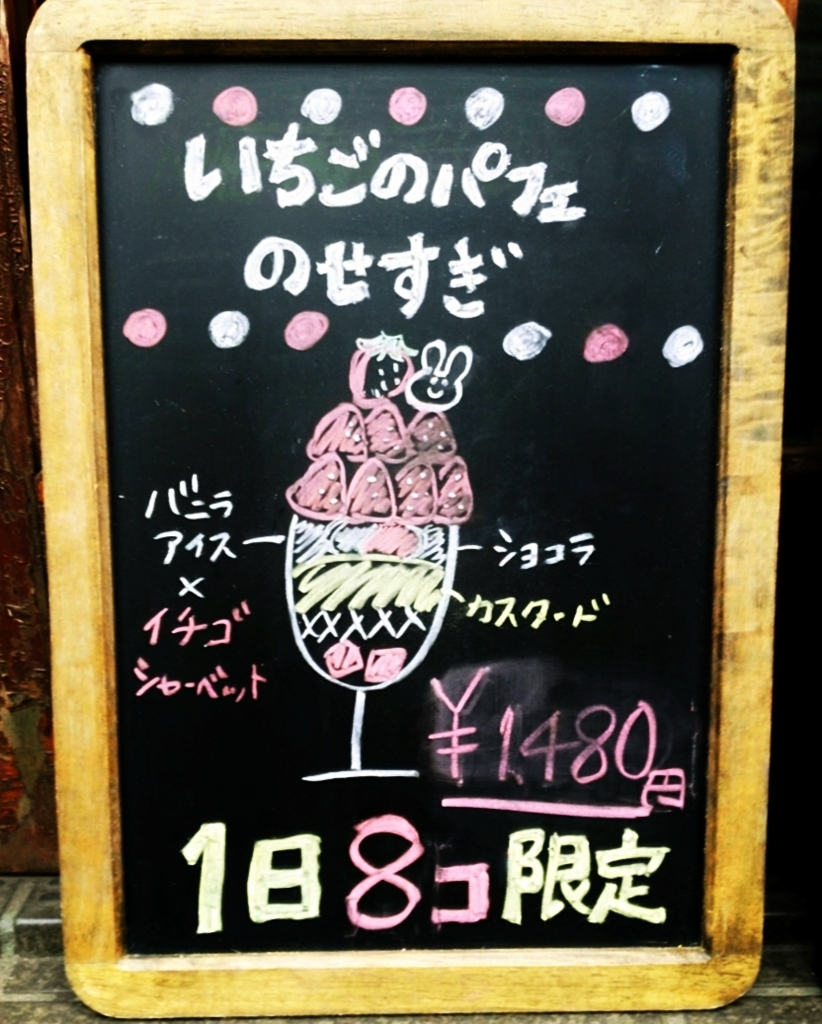 いちごのパフェ
のせすぎ
バニラ
アイス
×
イチゴ
シャーベット
ショコラ
カスタード
¥1,480円
1日8コ限定